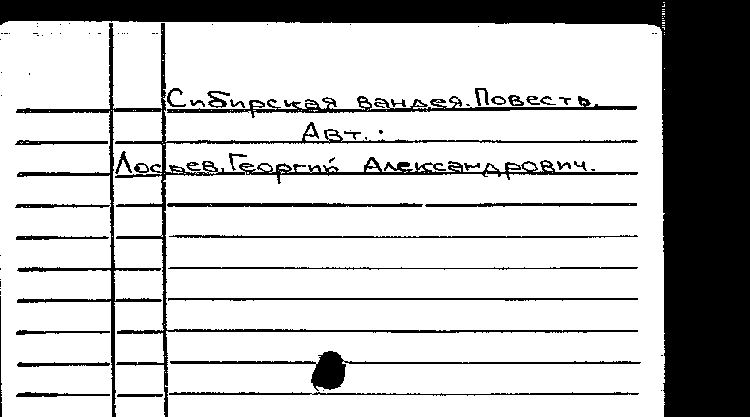 Сибирская вандея. Повесть.
Авт.:
Лосьев, Георгий Александрович.